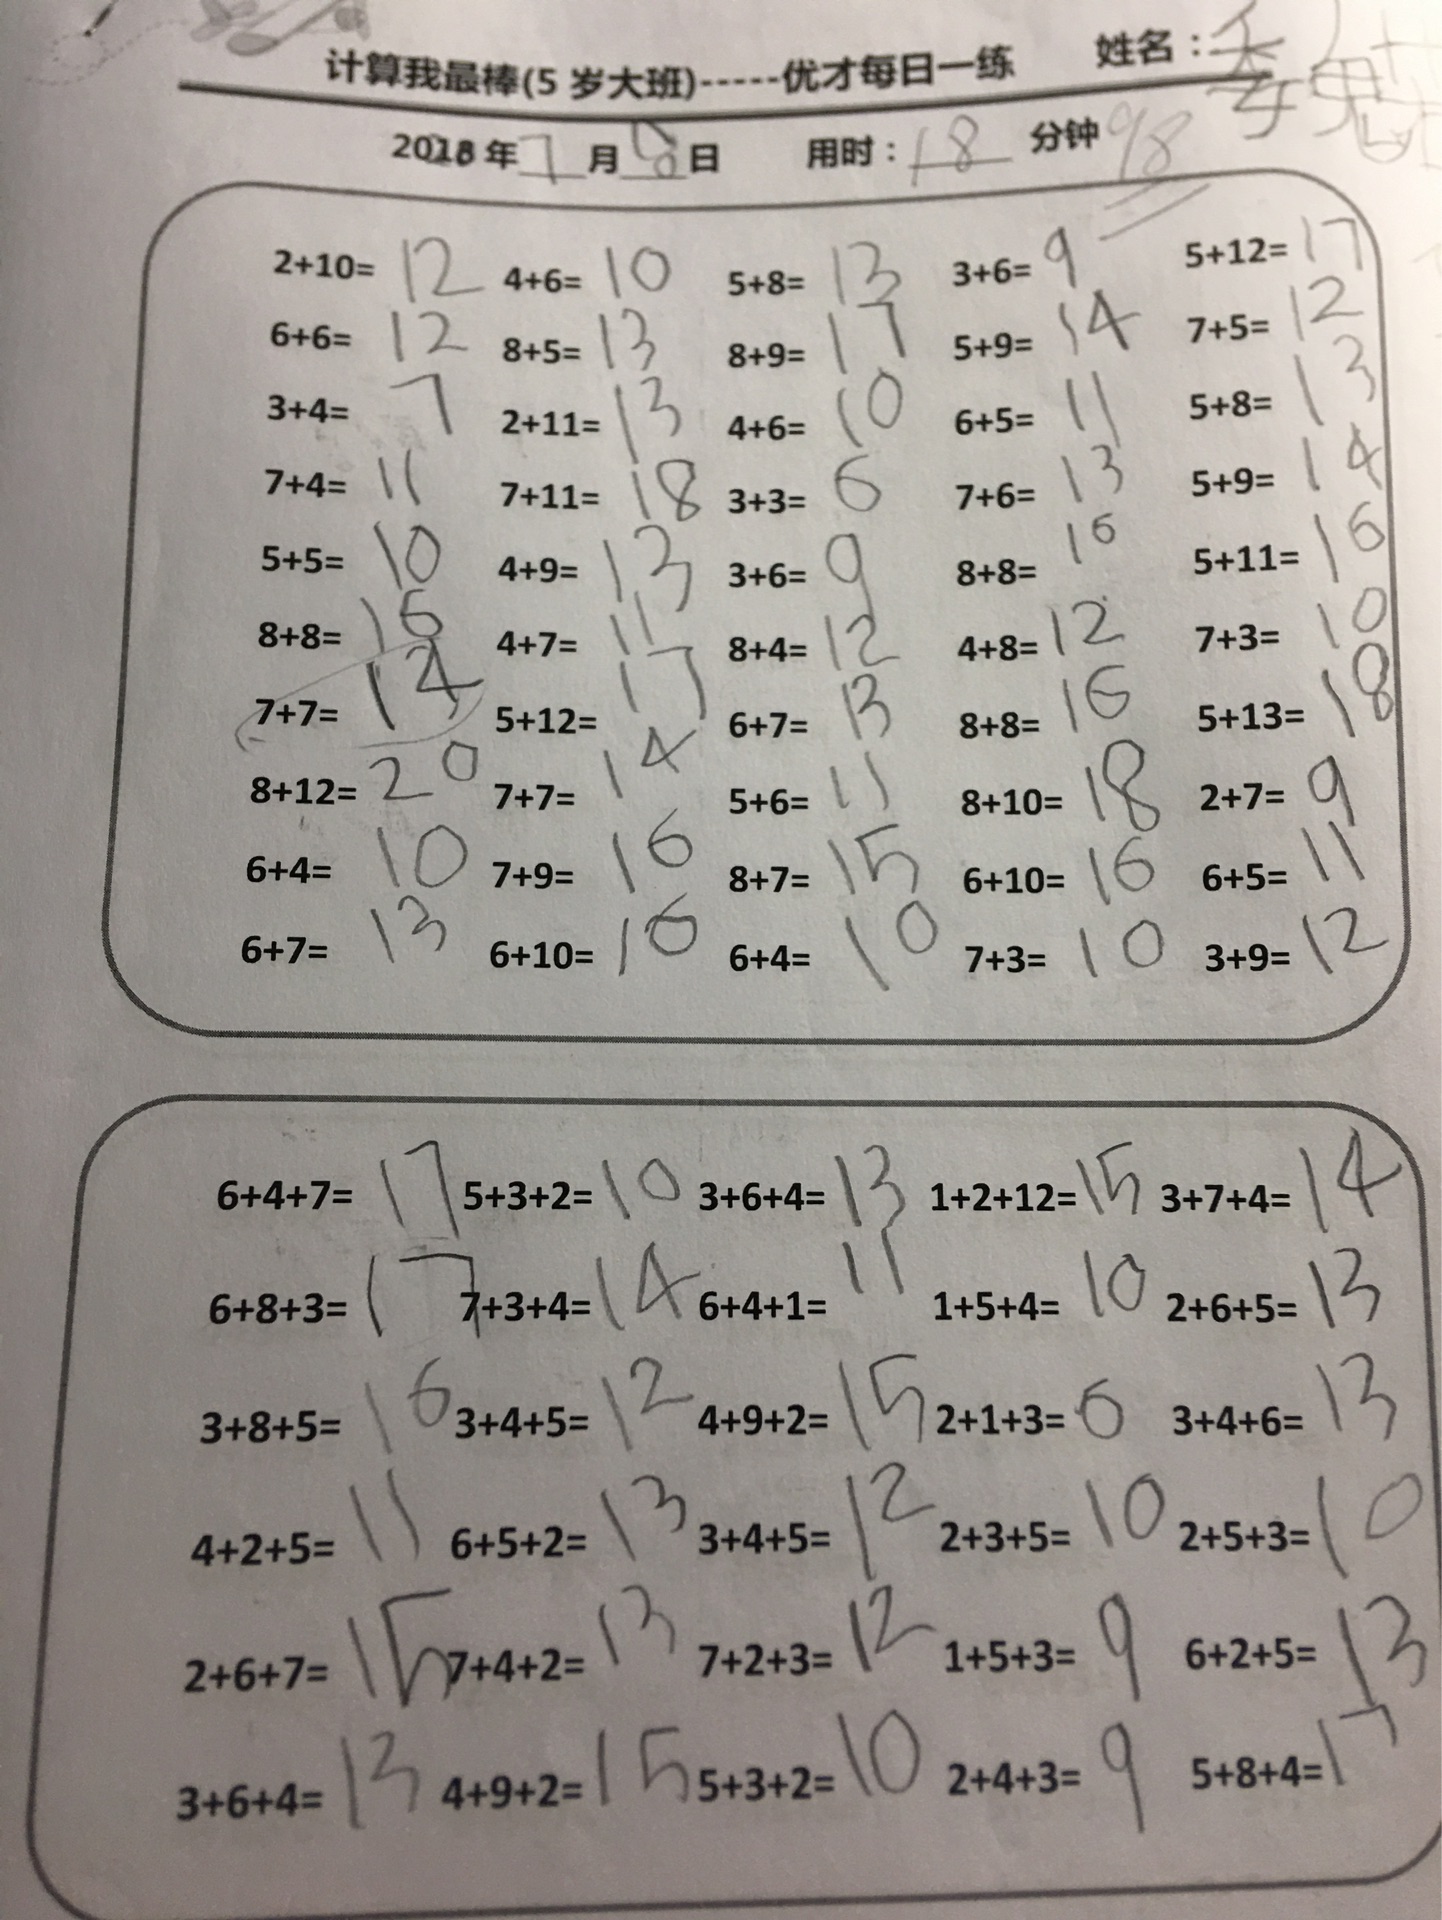 计算我最棒(5 岁大班)-----优才每日一练 姓名：
2018 年 7 月 8 日 用时：18 分钟 98
2+10= 12 4+6= 10 5+8= 13 3+6= 9 5+12= 17
6+6= 12 8+5= 13 8+9= 17 5+9= 14 7+5= 12
3+4= 7 2+11= 13 4+6= 10 6+5= 11 5+8= 13
7+4= 11 7+11= 18 3+3= 6 7+6= 13 5+9= 14
5+5= 10 4+9= 13 3+6= 9 8+8= 16 5+11= 16
8+8= 16 4+7= 11 8+4= 12 4+8= 12 7+3= 10
7+7= 14 5+12= 17 6+7= 13 8+8= 16 5+13= 18
8+12= 20 7+7= 14 5+6= 11 8+10= 18 2+7= 9
6+4= 10 7+9= 16 8+7= 15 6+10= 16 6+5= 11
6+7= 13 6+10= 16 6+4= 10 7+3= 10 3+9= 12
6+4+7= 17 5+3+2= 10 3+6+4= 13 1+2+12= 15 3+7+4= 14
6+8+3= 17 7+3+4= 14 6+4+1= 11 1+5+4= 10 2+6+5= 13
3+8+5= 16 3+4+5= 12 4+9+2= 15 2+1+3= 6 3+4+6= 13
4+2+5= 11 6+5+2= 13 3+4+5= 12 2+3+5= 10 2+5+3= 10
2+6+7= 15 7+4+2= 13 7+2+3= 12 1+5+3= 9 6+2+5= 13
3+6+4= 13 4+9+2= 15 5+3+2= 10 2+4+3= 9 5+8+4= 17